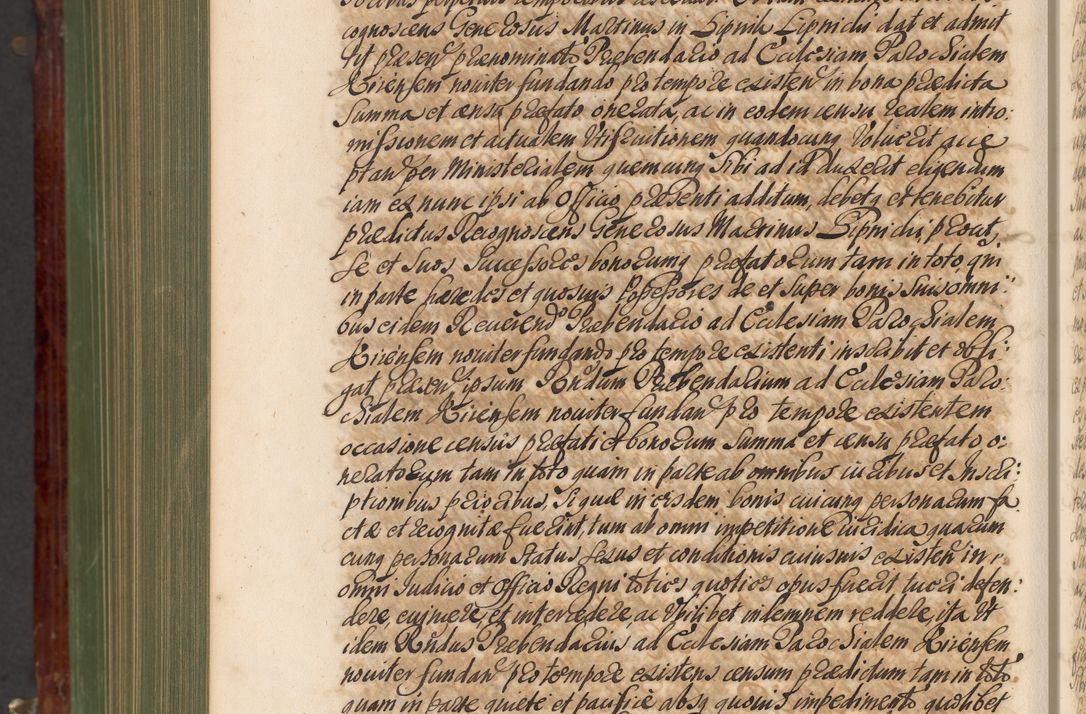 cognoscens Generosus Martinus in Lipnik Lipnicki dat et admit
tit præsen̄ prænominato Præbendario ad Ecclesiam Parochialem
Kirensem noviter fundando pro tempore existen̄ in bona prædicta
Summa et censu præfato onerata, ac in eodem censu realem intro:
missionem et actualem Usfruitionem quandocunq̨ voluerit acce
ptan̄ per Ministerialem quemcunq̨ Sibi ad id duxerit eligendum
iam ex nunc ipsi ab Officio præsenti additum, debetq̨ et tenebitur
prædictus Recognoscens Generosus Martinus Lipnicki, prout,
se et Suos Successores bonorumq̨ præfatorum tam in toto, qm̄
in parte hæredes et quosvis Possessores de et super bonis Suis omni:
bus eidem Reverend̄o Præbendario ad Ecclesiam Parochialem
Kirensem noviter fundando pro tempore existenti inscribit et obli:
gat, præsen̄ ipsum Rn̄dum Præbendarium ad Ecclesiam Paro:
chialem Kirensem noviter fundan̄ pro tempore existentem
occasione census præfati et bonorum Summa et censu præfato o:
neratorum tam in toto quam in parte ab omnibus iuribus et Inscri:
ptionibus prioribus, Si quæ in eisdem bonis cuicunq̨ personarum fa
ctæ et recognitæ fuerint, tum ab omni impetitione iuridica quarum
cunq̨ personarum Status Sexus et conditionis cuiusvis existen̄ in
omni Iudicio et Officio Regni toties quoties opus fuerit tueri defen:
dere, evincere, et intercedere, ac Utilibet indemnem reddere, ita Ut
idem Rn̄dus Præbendarius ad Ecclesiam Parochialem Kirensem
noviter fundan̄ pro tempore existens censum prædictum tam in toto
quam in parte quiete et pacifice absq̨ quovis impedimento quolibet